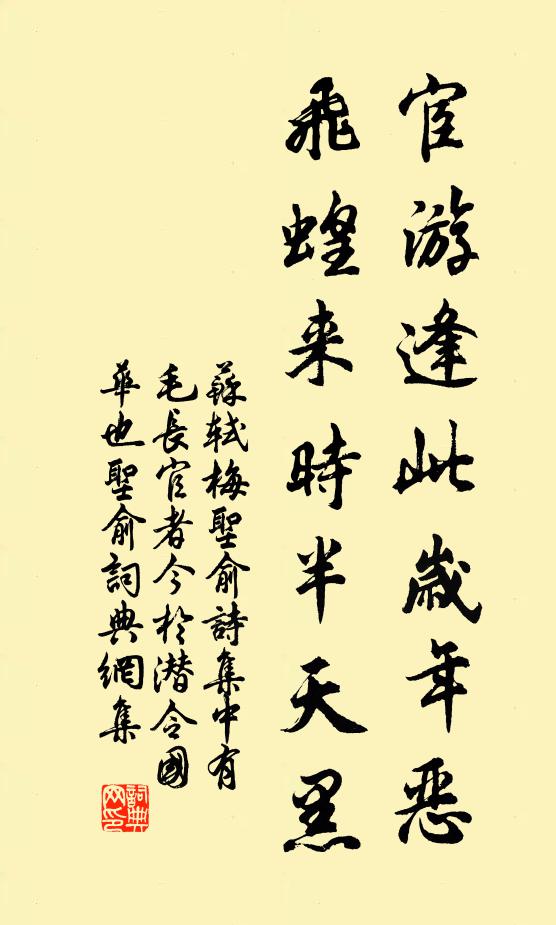 宦游逢此歲年惡
飛蝗来時半天黑
蘇軾梅聖俞詩集中有
毛長官者今於潜令國
華也聖俞詞典網集
詞典网印